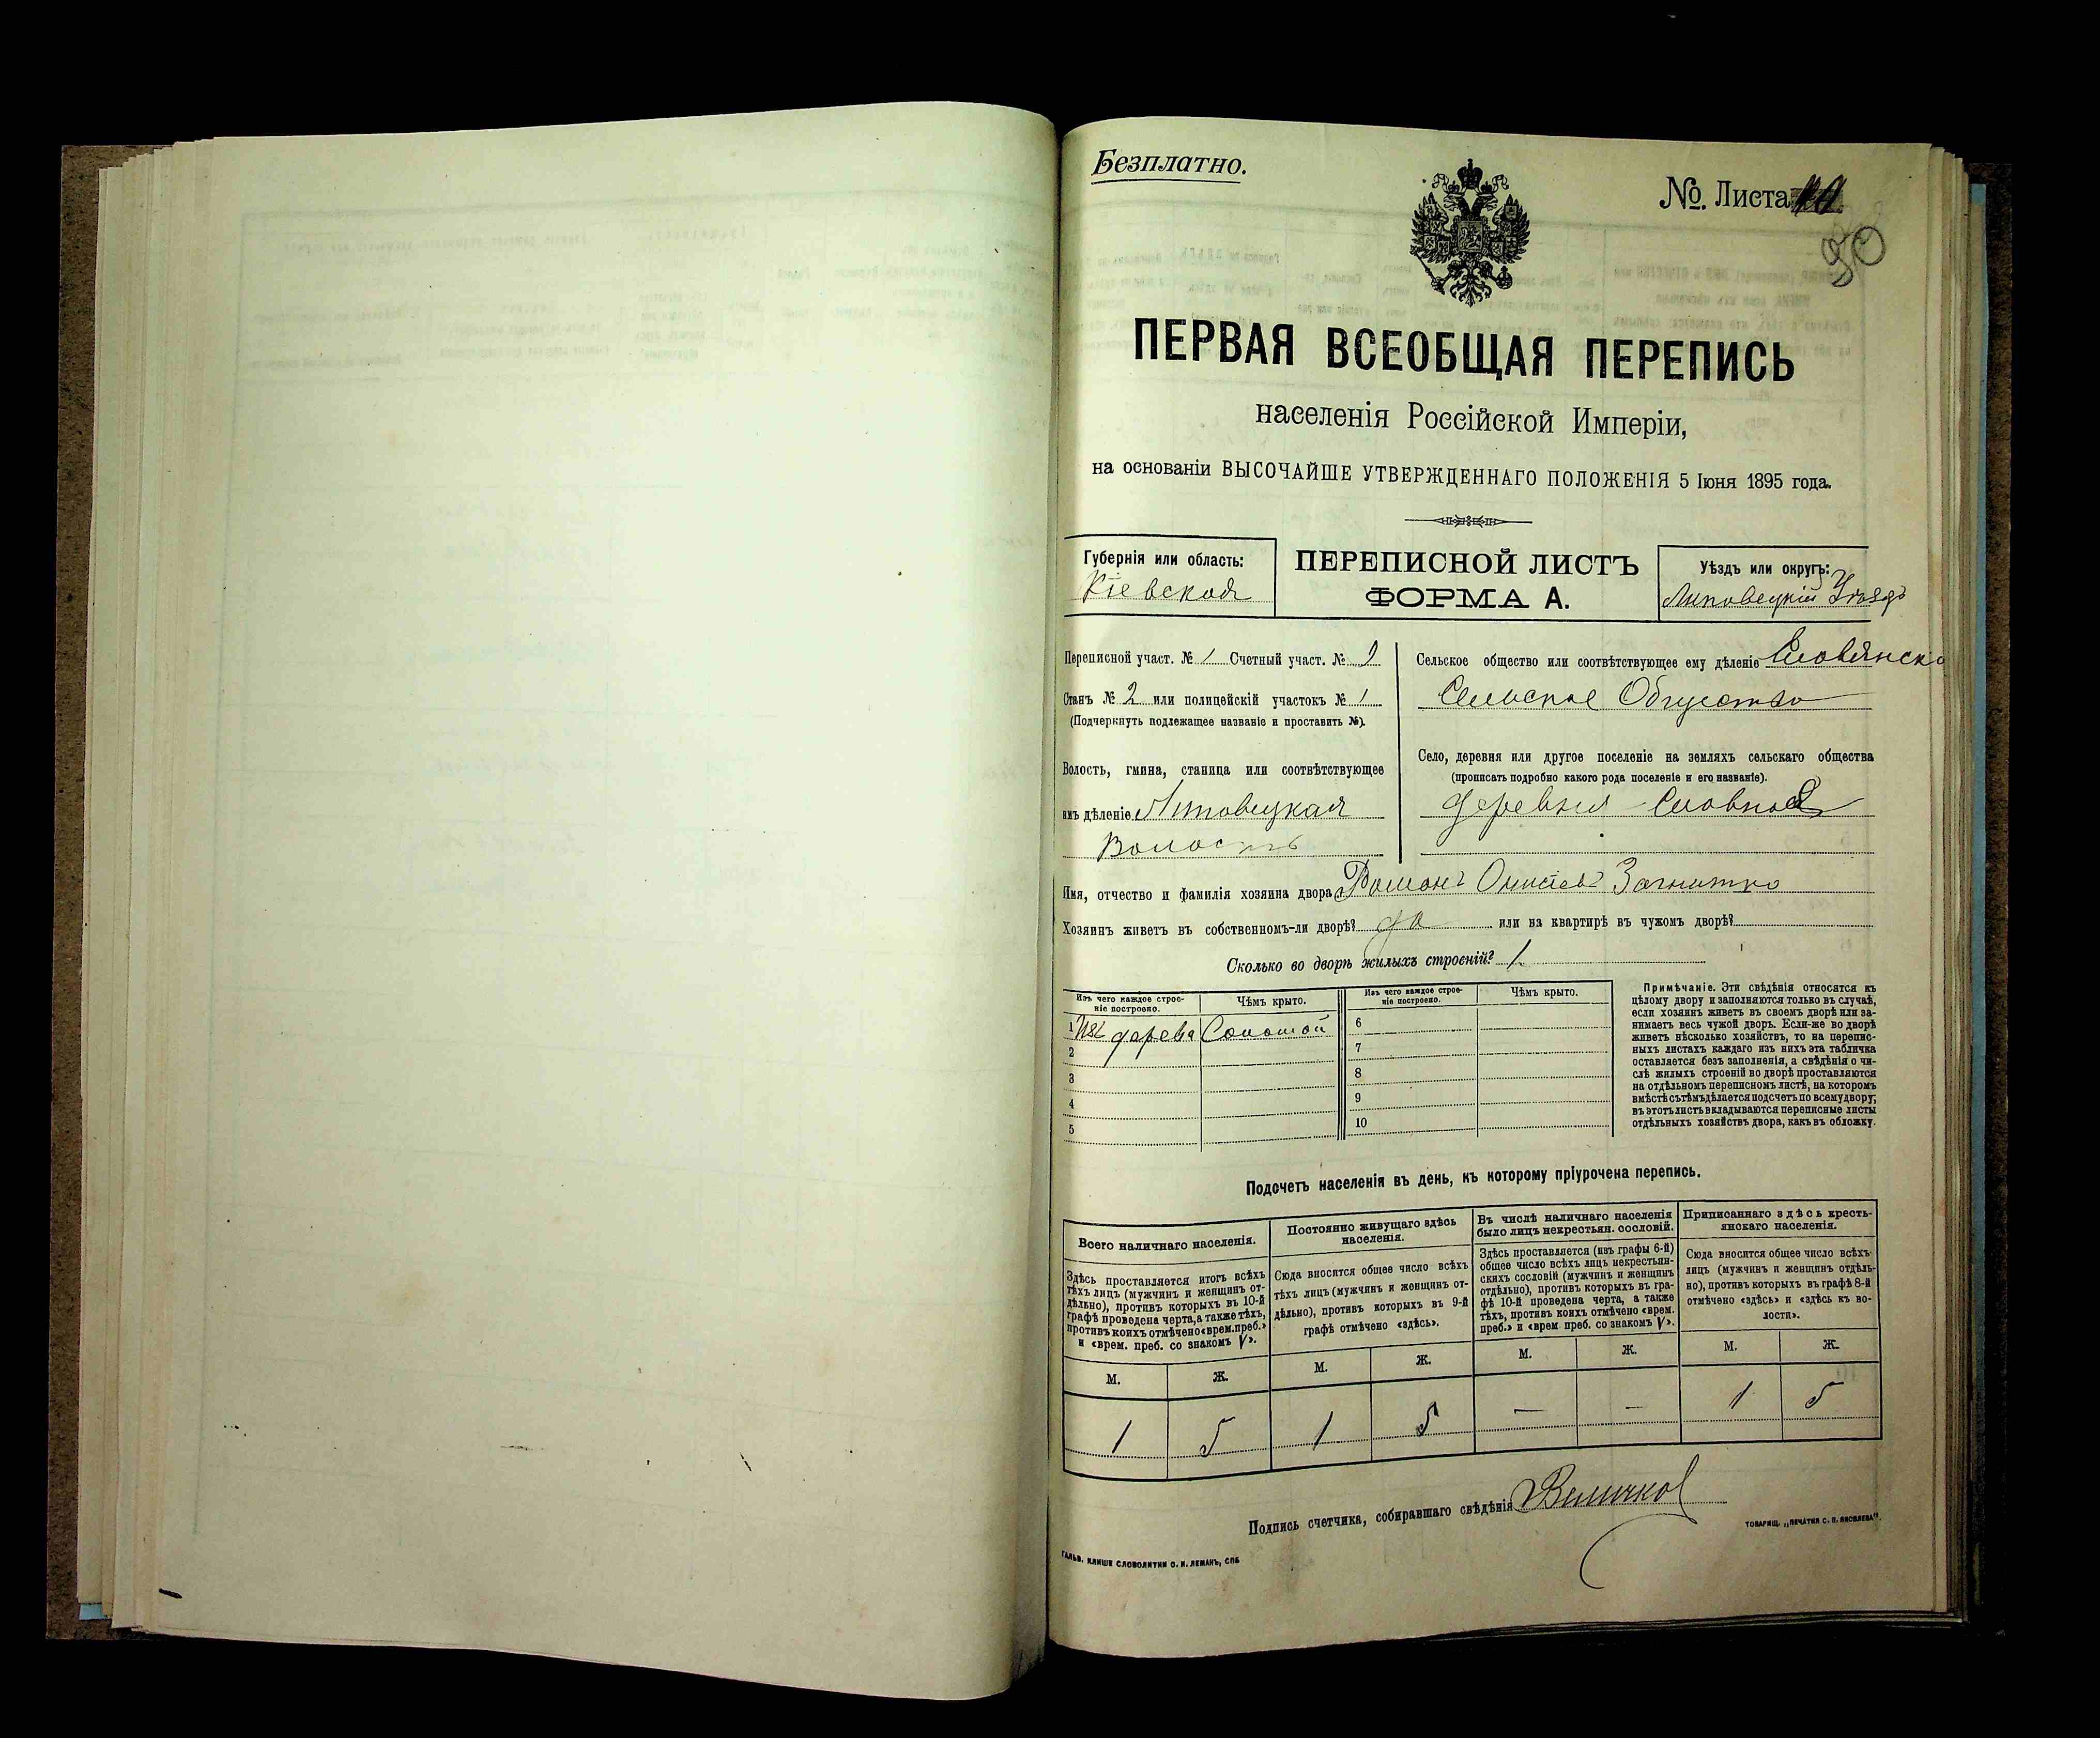 Безплатно.
№. Листа
90
ПЕРВАЯ ВСЕОБЩАЯ ПЕРЕПИСЬ
населенія Россійской Имперіи,
на основаніи ВЫСОЧАЙШЕ УТВЕРЖДЕННАГО ПОЛОЖЕНІЯ 5 Іюня 1895 года.
Губернія или область:
Кіевская
ПЕРЕПИСНОЙ ЛИСТЪ
ФОРМА А.
Уѣздъ или округъ:
Липовецкій Уѣздъ
Переписной участ. № 1 Счетный участ. №
Станъ № 2 или полицейскій участокъ № 1
(Подчеркнуть подлежащее названіе и проставить №).
Волость, гмина, станица или соотвѣтствующее
имъ дѣленіе Липовецкая
Волость
Сельское общество или соотвѣтствующее ему дѣленіе
Сельское Общество
Село, деревня или другое поселеніе на земляхъ сельскаго общества
(прописать подробно какого рода поселеніе и его названіе).
деревня
Имя, отчество и фамилія хозяина двора Романъ
Хозяинъ живетъ въ собственномъ-ли дворѣ? да или на квартирѣ въ чужомъ дворѣ?
Сколько во дворѣ жилыхъ строеній? 1
Изъ чего каждое строе-
ніе построено.
Чѣмъ крыто.
Изъ чего каждое строе-
ніе построено.
Чѣмъ крыто.
1 Изъ дерева Соломой
2
3
4
5
6
7
8
9
10
Примѣчаніе. Эти свѣдѣнія относятся къ
цѣлому двору и заполняются только въ случаѣ,
если хозяинъ живетъ въ своемъ дворѣ или за-
нимаетъ весь чужой дворъ. Если-же во дворѣ
живетъ нѣсколько хозяйствъ, то на перепис-
ныхъ листахъ каждаго изъ нихъ эта табличка
оставляется безъ заполненія, а свѣдѣнія о чи-
слѣ жилыхъ строеній во дворѣ проставляются
на отдѣльномъ переписномъ листѣ, на которомъ
вмѣстѣ съ тѣмъ дѣлается подсчетъ по всему двору;
въ этотъ листъ вкладываются переписные листы
отдѣльныхъ хозяйствъ двора, какъ въ обложку.
Подсчетъ населенія въ день, къ которому пріурочена перепись.
Всего наличнаго населенія.
Здѣсь проставляется итогъ всѣхъ
тѣхъ лицъ (мужчинъ и женщинъ от-
дѣльно), противъ которыхъ въ 10-й
графѣ проведена черта, а также тѣхъ,
противъ коихъ отмѣчено «врем. преб.»
и «врем. преб. со знакомъ V».
М. Ж.
1 5
Постоянно живущаго здѣсь
населенія.
Сюда вносится общее число всѣхъ
тѣхъ лицъ (мужчинъ и женщинъ от-
дѣльно), противъ которыхъ въ 9-й
графѣ отмѣчено «здѣсь».
М. Ж.
1 5
Въ числѣ наличнаго населенія
было лицъ некрестьян. сословій.
Здѣсь проставляется (изъ графы 6-й)
общее число всѣхъ лицъ некрестьян-
скихъ сословій (мужчинъ и женщинъ
отдѣльно), противъ которыхъ въ гра-
фѣ 10-й проведена черта, а также
тѣхъ, противъ коихъ отмѣчено «врем.
преб.» и «врем. преб. со знакомъ V».
М. Ж.
— —
Приписаннаго здѣсь кресть-
янскаго населенія.
Сюда вносится общее число всѣхъ
лицъ (мужчинъ и женщинъ отдѣль-
но), противъ которыхъ въ графѣ 8-й
отмѣчено «здѣсь» и «здѣсь къ во-
лости».
М. Ж.
1 5
Подпись счетчика, собиравшаго свѣдѣнія
ГАЛЬВ. КЛИШЕ СЛОВОЛИТНИ О. И. ЛЕМАНЪ, СПБ
ТОВАРИЩ. „ПЕЧАТНЯ С. П. ЯКОВЛЕВА".